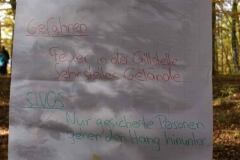 Gefahren
Feuer in der Grillstelle
sehr steiles Gelände
SIVOS
Nur gesicherte Personen
gehen den Hang hinunter